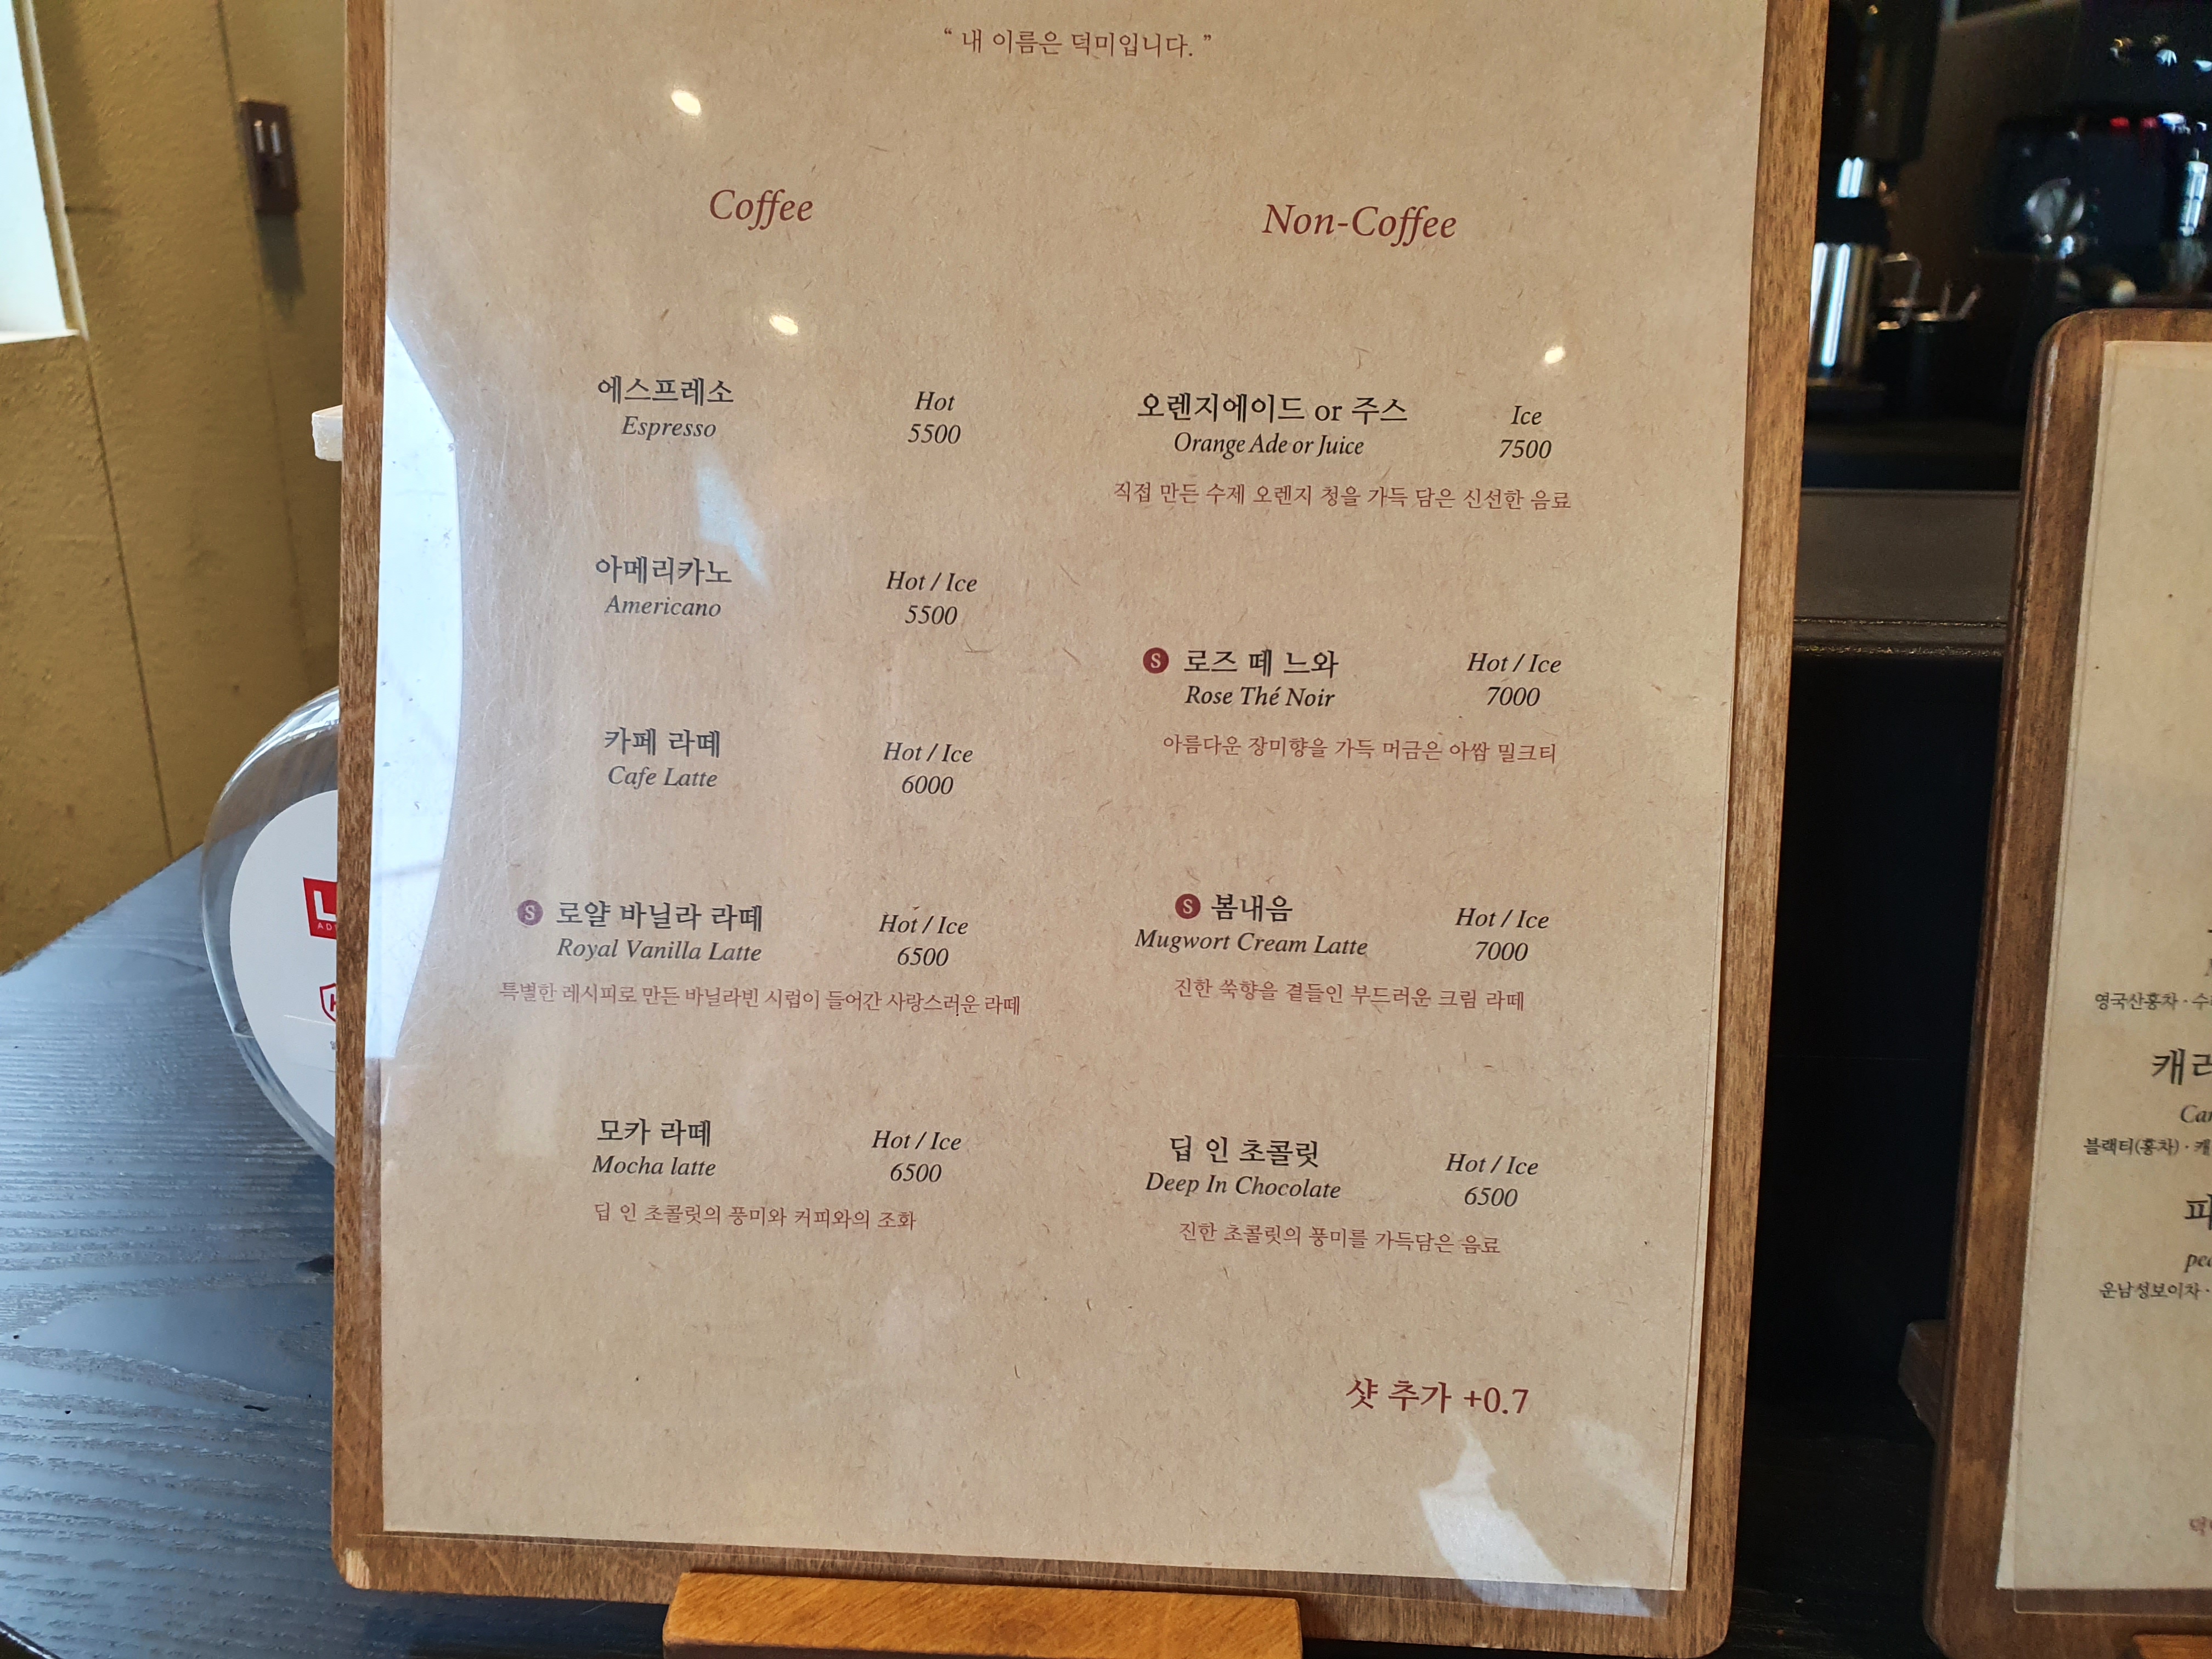 “ 내 이름은 덕미입니다. ”
Coffee
에스프레소
Espresso
Hot
5500
아메리카노
Americano
Hot / Ice
5500
카페 라떼
Cafe Latte
Hot / Ice
6000
S 로얄 바닐라 라떼
Royal Vanilla Latte
Hot / Ice
6500
특별한 레시피로 만든 바닐라빈 시럽이 들어간 사랑스러운 라떼
모카 라떼
Mocha latte
Hot / Ice
6500
딥 인 초콜릿의 풍미와 커피와의 조화
Non-Coffee
오렌지에이드 or 주스
Orange Ade or Juice
Ice
7500
직접 만든 수제 오렌지 청을 가득 담은 신선한 음료
S 로즈 떼 느와
Rose Thé Noir
Hot / Ice
7000
아름다운 장미향을 가득 머금은 아쌈 밀크티
S 봄내음
Mugwort Cream Latte
Hot / Ice
7000
진한 쑥향을 곁들인 부드러운 크림 라떼
딥 인 초콜릿
Deep In Chocolate
Hot / Ice
6500
진한 초콜릿의 풍미를 가득담은 음료
샷 추가 +0.7
영국산홍차 ·
캐
블랙티(홍차) ·
운남성보이차 ·